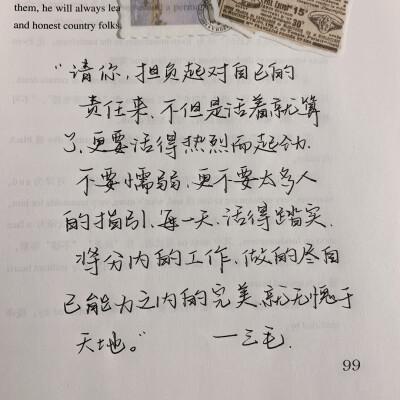 them, he will always lea
and honest country folks
15
30
“请你，担负起对自己的
责任来，不但是活着就算
了，更要活得热烈而起劲.
不要懦弱，更不要太多人
的指引，每一天，活得踏实.
将分内的工作，做的尽自
己能力之内的完美，就无愧于
天地。”  —三毛.
99